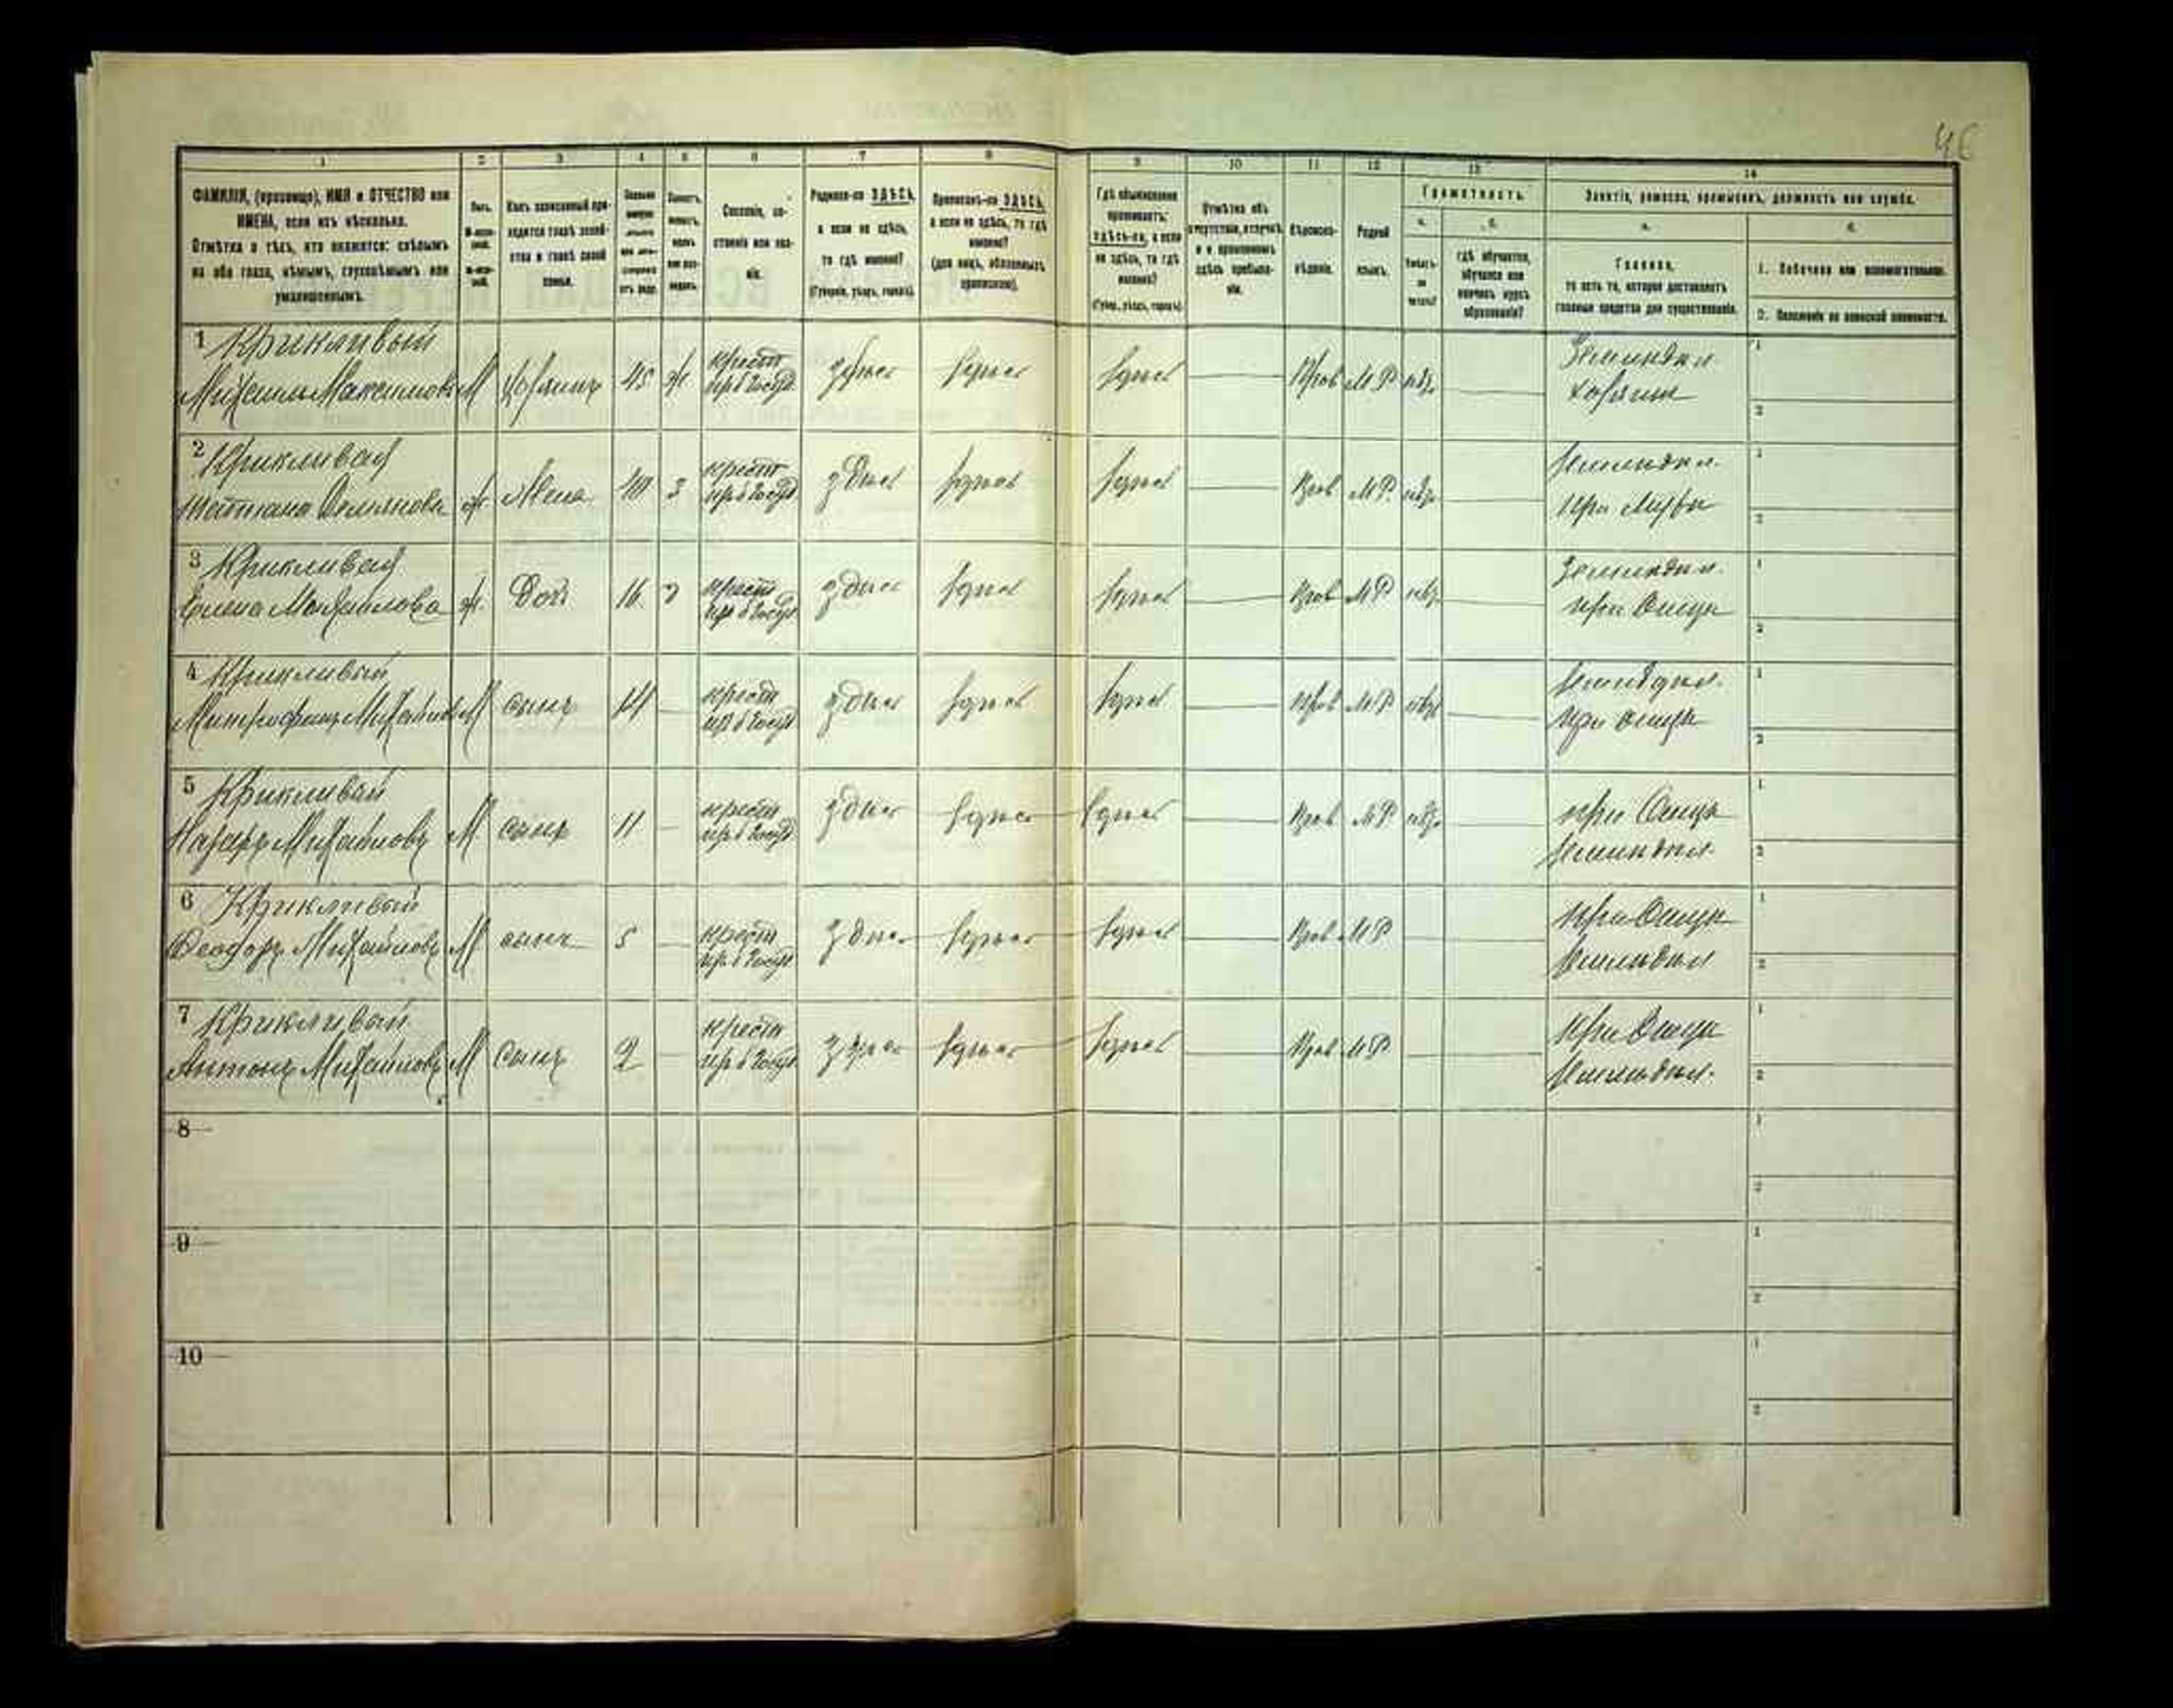 46
1 2 3 4 5 6 7 8 9 10 11 12 13 14
ФАМИЛІЯ, (прозвище), ИМЯ и ОТЧЕСТВО или
ИМЕНА, если ихъ нѣсколько.
Отмѣтка о тѣхъ, кто окажется: слѣпымъ
на оба глаза, нѣмымъ, глухонѣмымъ или
умалишеннымъ.
Полъ.
Какъ записанный при-
ходится главѣ хозяй-
ства и главѣ своей
семьи.
Сословіе, со-
стояніе или зва-
ніе.
Родился-ли ЗДѢСЬ,
а если не здѣсь,
то гдѣ именно?
(Губернія, уѣздъ, городъ).
Приписанъ-ли ЗДѢСЬ,
а если не здѣсь, то гдѣ
именно?
(для лицъ, обязанныхъ
припискою).
Гдѣ обыкновенно
проживаетъ:
здѣсь-ли, а если
не здѣсь, то гдѣ
именно?
(Губер., уѣздъ, городъ).
Отмѣтка объ
отсутствіи, отлучкѣ
и о временномъ
здѣсь пребыва-
ніи.
Вѣроиспо-
вѣданіе.
Родной
языкъ.
Грамотность.
а. б.
Умѣетъ-
ли
читать?
гдѣ обучается,
обучался или
кончилъ курсъ
образованія?
Занятіе, ремесло, промыселъ, должность или служба.
а. б.
Главное,
то есть то, которое доставляетъ
главныя средства для существованія.
1. Побочное или вспомогательное.
2. Положеніе по воинской повинности.
1 Крикливый
Михаилъ Максимовъ М хозяинъ 45 ж крест здѣсь здѣсь здѣсь Прав М Р нѣтъ Земледѣл
хозяинъ
2 Крикливая
Демьянова ж Жена 40 з крест здѣсь здѣсь здѣсь Прав М Р. нѣтъ земледѣл.
при мужѣ
3 Крикливая
Елена Михайлова ж. Дочь 16 крест здѣсь здѣсь здѣсь Прав М Р нѣтъ Земледѣл.
при Отцѣ
4 Крикливый
Митрофанъ Михайловъ М сынъ 14 крест здѣсь здѣсь здѣсь Прав М Р нѣтъ земледѣл.
при отцѣ
5 Крикливый
Назаръ Михайловъ М сынъ 11 крест здѣсь здѣсь здѣсь Прав М Р нѣтъ при Отцѣ
земледѣл.
6 Крикливый
Феодоръ Михайловъ М сынъ 5 крест здѣсь здѣсь здѣсь Прав М Р при Отцѣ
земледѣл
7 Крикливый
Антонъ Михайловъ М сынъ 2 крест здѣсь здѣсь здѣсь Прав М Р при Отцѣ
земледѣл.
8
9
10